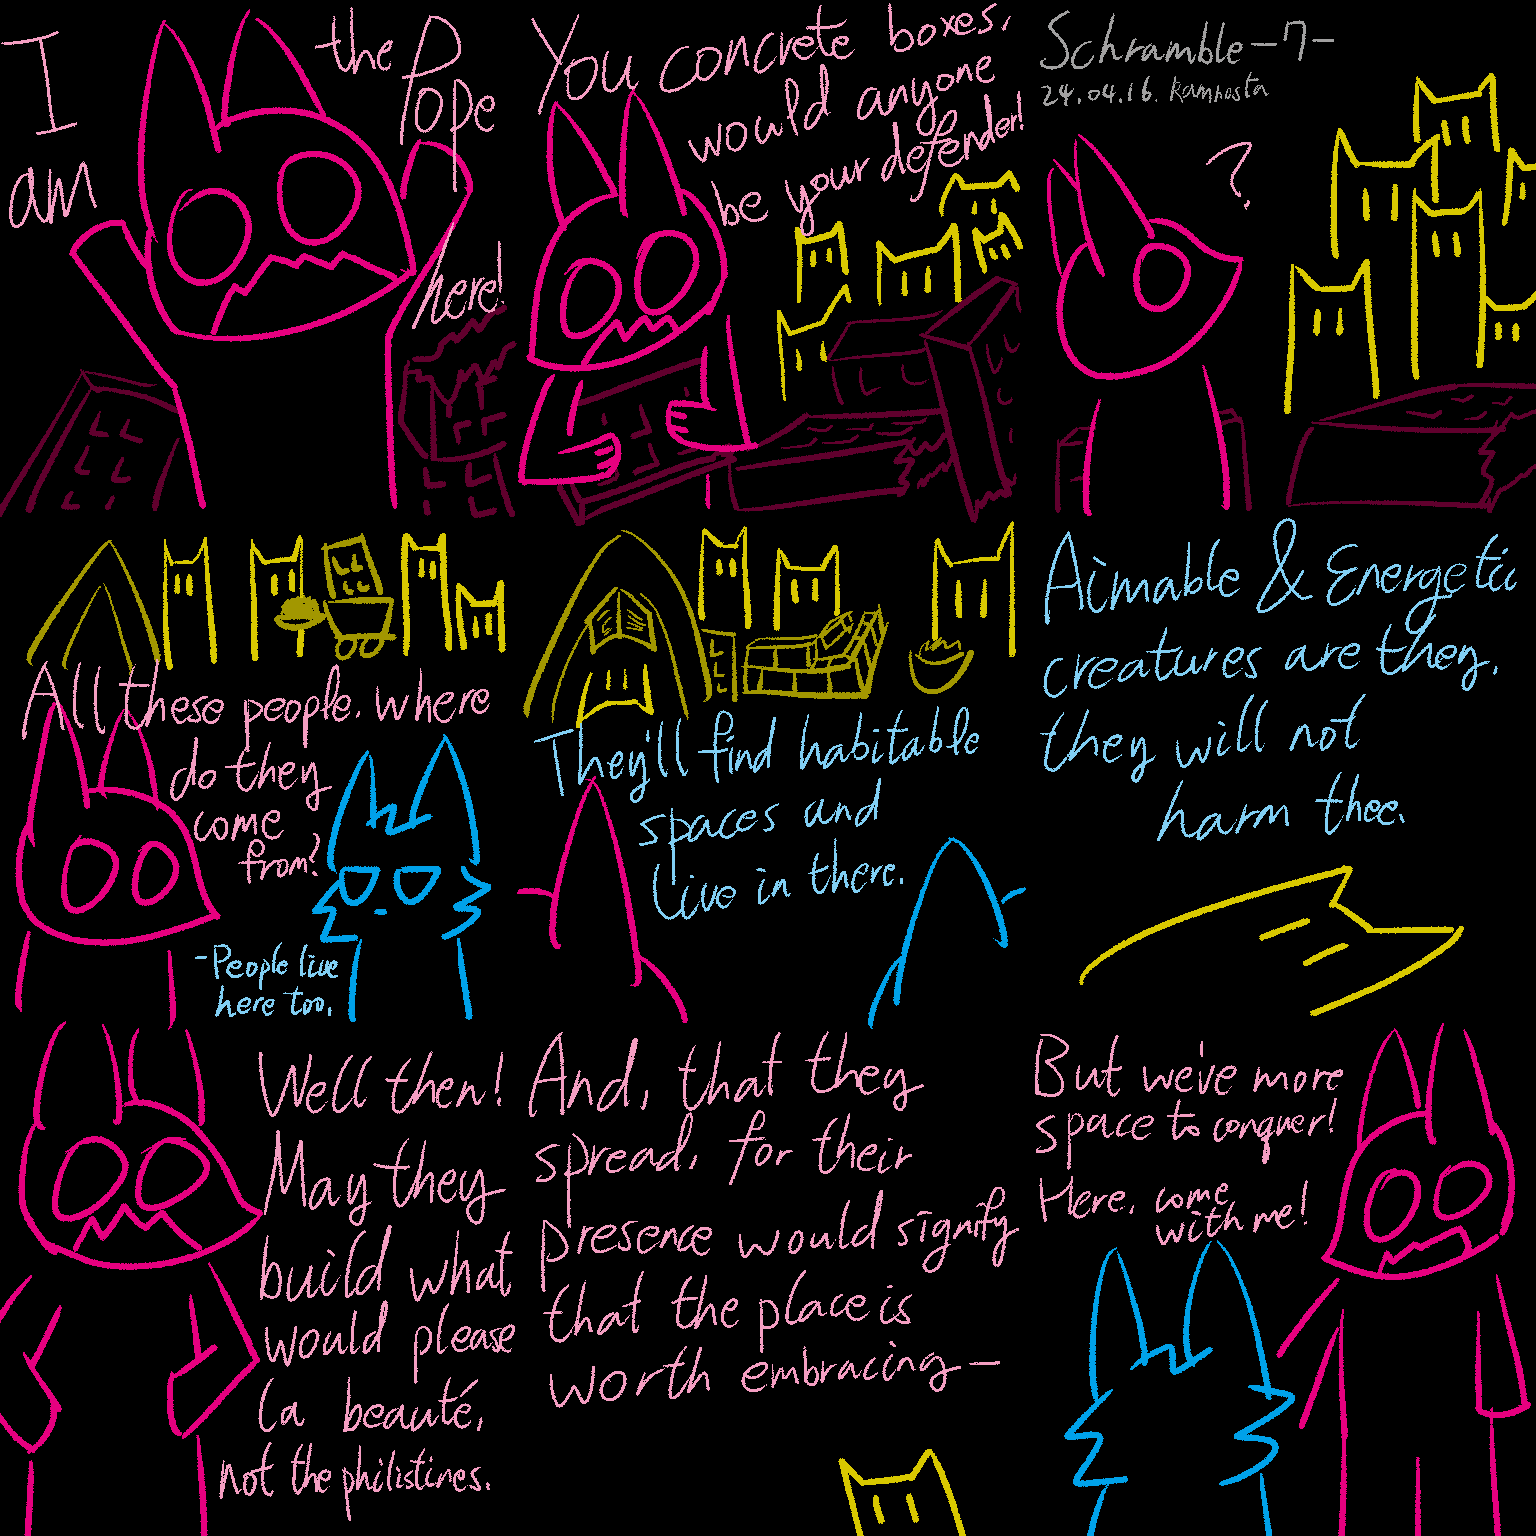 I
am
the
Pope
here!
You concrete boxes,
would anyone
be your defender!
Schramble-7-
24.04.16. Kamhosta
?
All these people. where
do they
come
from?
-People live
here too.
They'll find habitable
spaces and
live in there.
Aimable & Energetic
creatures are they,
they will not
harm thee.
Well then!
May they
build what
would please
la beauté,
not the philistines.
And, that they
spread, for their
presence would signify
that the place is
worth embracing—
But we've more
space to conquer!
Here, come
with me!